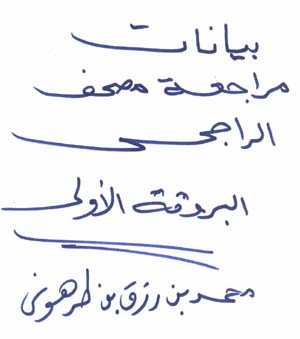 بيانات
مراجعة مصحف
الراجحي
البروفة الأولى
محمد بن رزق بن طرهوني